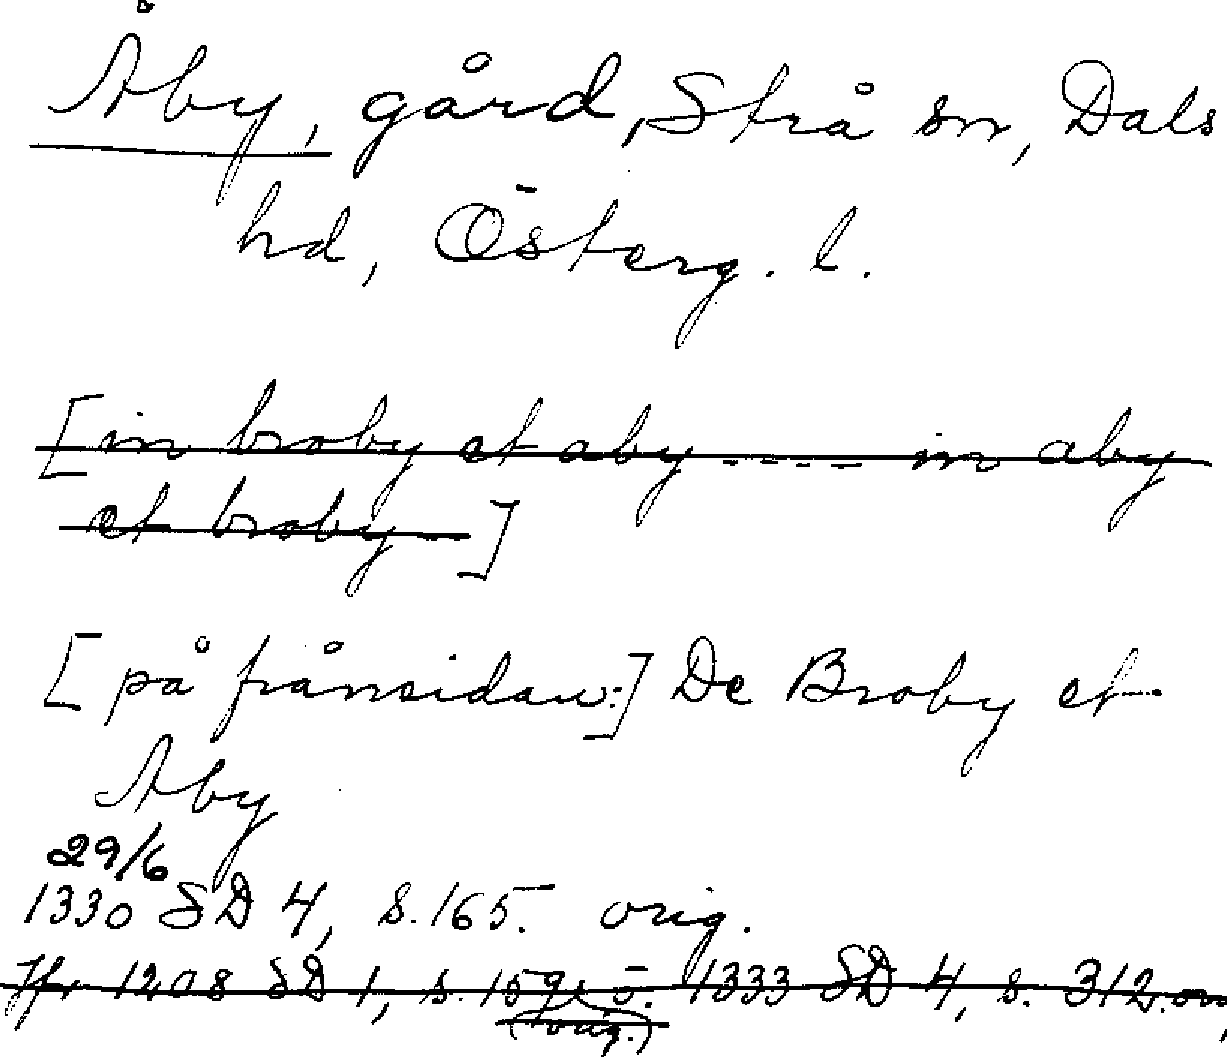 Åby, gård, Strå sn, Dals
hd, Österg. l.
[in broby et aby ---- in aby
et broby -]
[på frånsidan:] De Broby et
Aby
29/6
1330 SD 4, s. 165. orig.
Jfr 1208 SD 1, s. 159, o. 1333 SD 4, s. 312. or
(orig.)